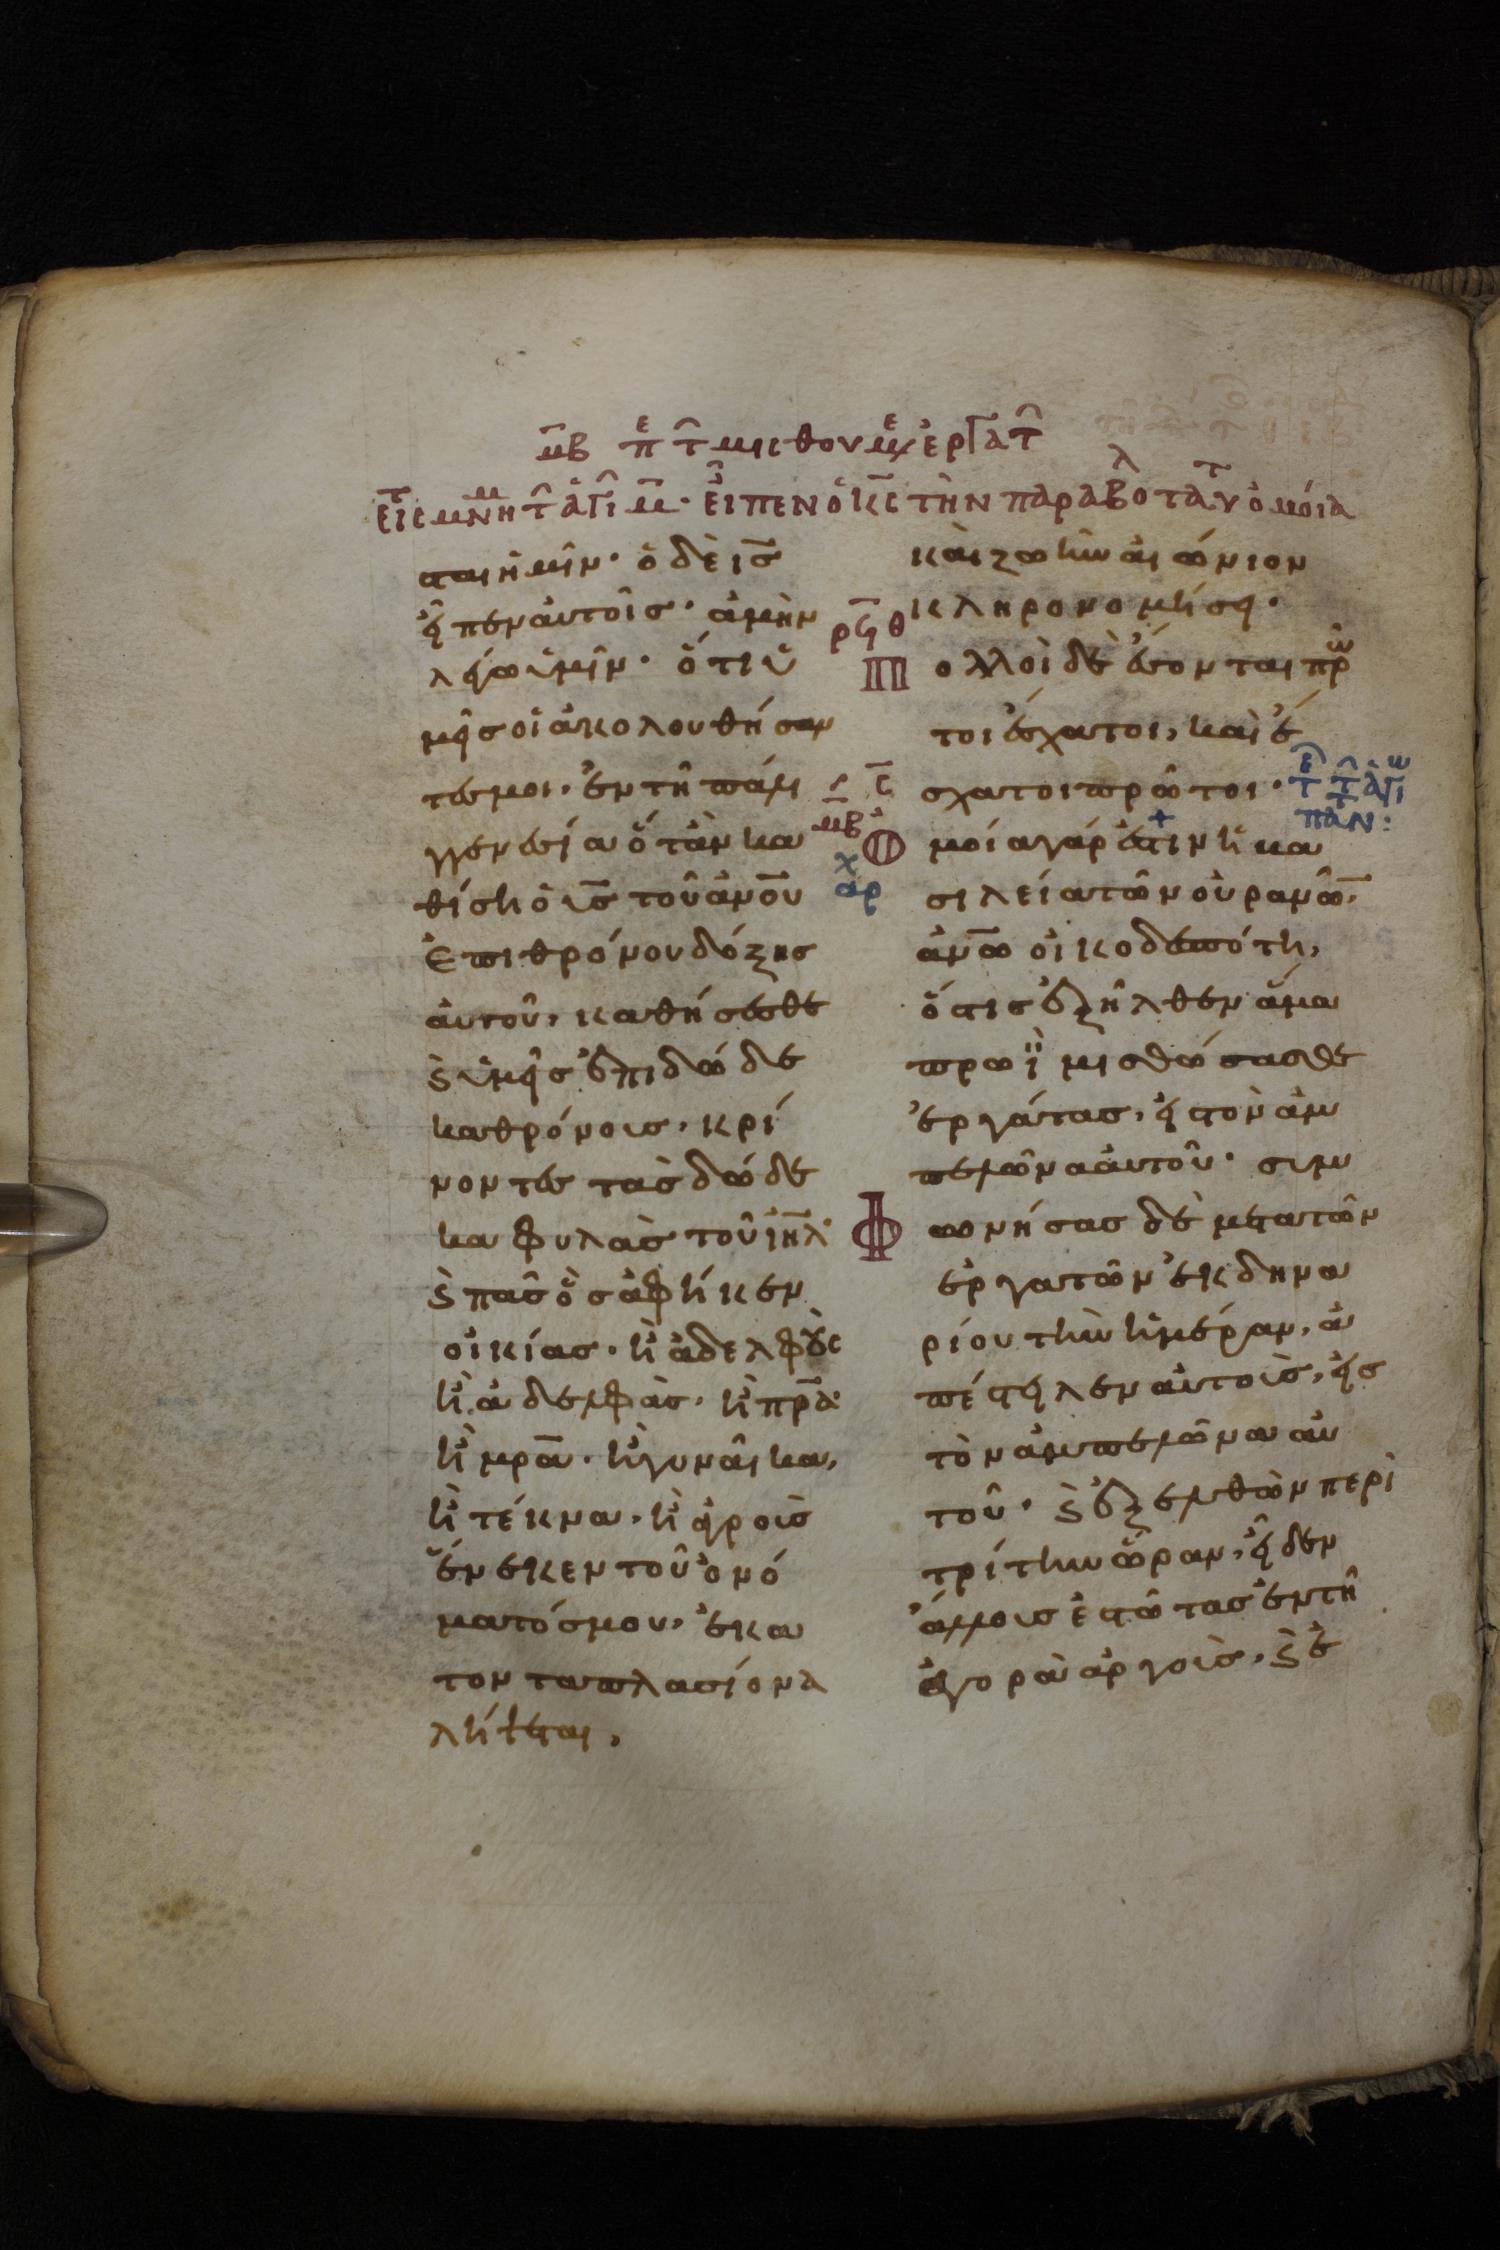 μβ π τ μισθουμ εργατ
εις μνη τ αγι μ· ειπεν ο κς την παραβο ταυ ομοια
σται ἡμῖν· ὁ δὲ ις
εἶπεν αὐτοῖς· ἀμὴν
λέγω ὑμῖν· ὅτι ὑ
μεῖς οἱ ἀκολουθήσαν
τές μοι, ἐν τῆ παλι
γγενεσία ὅταν κα
θίση ὁ υς τοῦ ἀνου
ἐπι θρόνου δόξης
αὐτοῦ, καθήσεσθε
ϗ ὑμεῖς ἐπι δώδε
κα θρόνους, κρί
νοντες τὰς δώδε
κα φυλὰς τοῦ ιηλ·
ϗ πᾶς ὃς ἀφῆκεν
οἰκίας· ἢ ἀδελφοὺς
ἢ ἀδελφὰς· ἢ πρα·
ἢ μρα· ἢ γυναῖκα,
ἢ τέκνα· ἢ ἀγροὺς
ἕνεκεν τοῦ ὀνό
ματός μου, ἑκα
τονταπλασίονα
λήψεται,
καὶ ζωὴν αἰώνιον
κληρονομήσει·
ρϟθ
Πολλοὶ δὲ ἔσονται πρῶ
τοι ἔσχατοι, καὶ ἔ
σχατοι πρῶτοι· τ τ αγι
παν:
ς
μβ
Ὁμοία γάρ ἐστιν ἡ βα
χ
αρ
σιλεία τῶν οὐρανῶ,
ἀνω οἰκοδεσπότη,
ὅστις ἐξῆλθεν ἅμα
πρωῒ μισθώσασθε
ἐργάτας, εἰς τὸν ἀμ
πελῶνα αὐτοῦ· συμ
Φωνήσας δὲ μετὰ τῶν
ἐργατῶν ἐκ δηνα
ρίου τὴν ἡμέραν, ἀ
πέστειλεν αὐτοὺς, εἰς
τὸν ἀμπελῶνα αὐ
τοῦ· ϗ ἐξελθὼν περὶ
τρίτην ὥραν, εἶδεν
ἄλλους ἑστῶτας ἐν τῆ
ἀγορὰ ἀργοὺς, ϗ ἐ